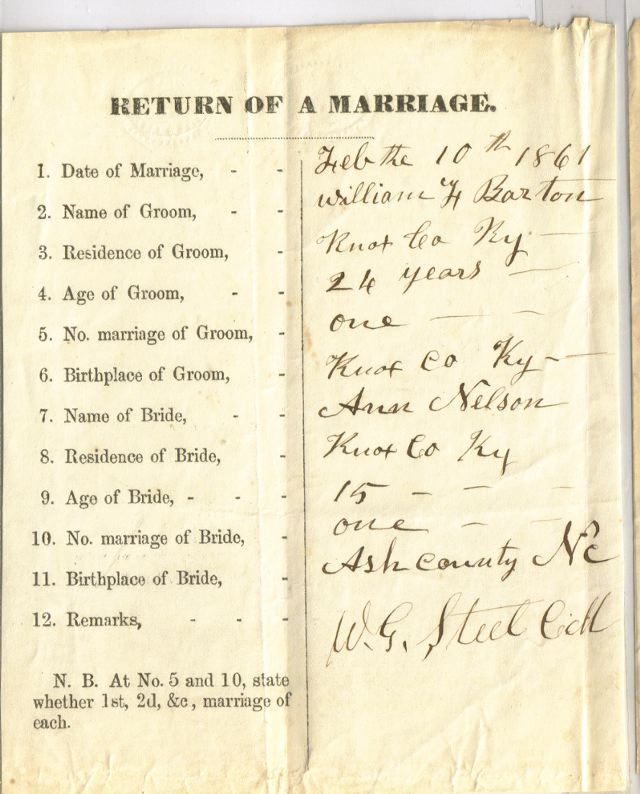 RETURN OF A MARRIAGE.
1. Date of Marriage, - - Feb the 10th 1861
2. Name of Groom, - - William F Barton
3. Residence of Groom, - Knox Co Ky —
4. Age of Groom, - - 24 years —
5. No. marriage of Groom, - one — —
6. Birthplace of Groom, - Knox Co Ky —
7. Name of Bride, - - Ann Nelson
8. Residence of Bride, - Knox Co Ky
9. Age of Bride, - - - 15 - - -
10. No. marriage of Bride, - one - -
11. Birthplace of Bride, - Ash county Nc
12. Remarks, - - - W. G. Steel
N. B. At No. 5 and 10, state
whether 1st, 2d, &c, marriage of
each.